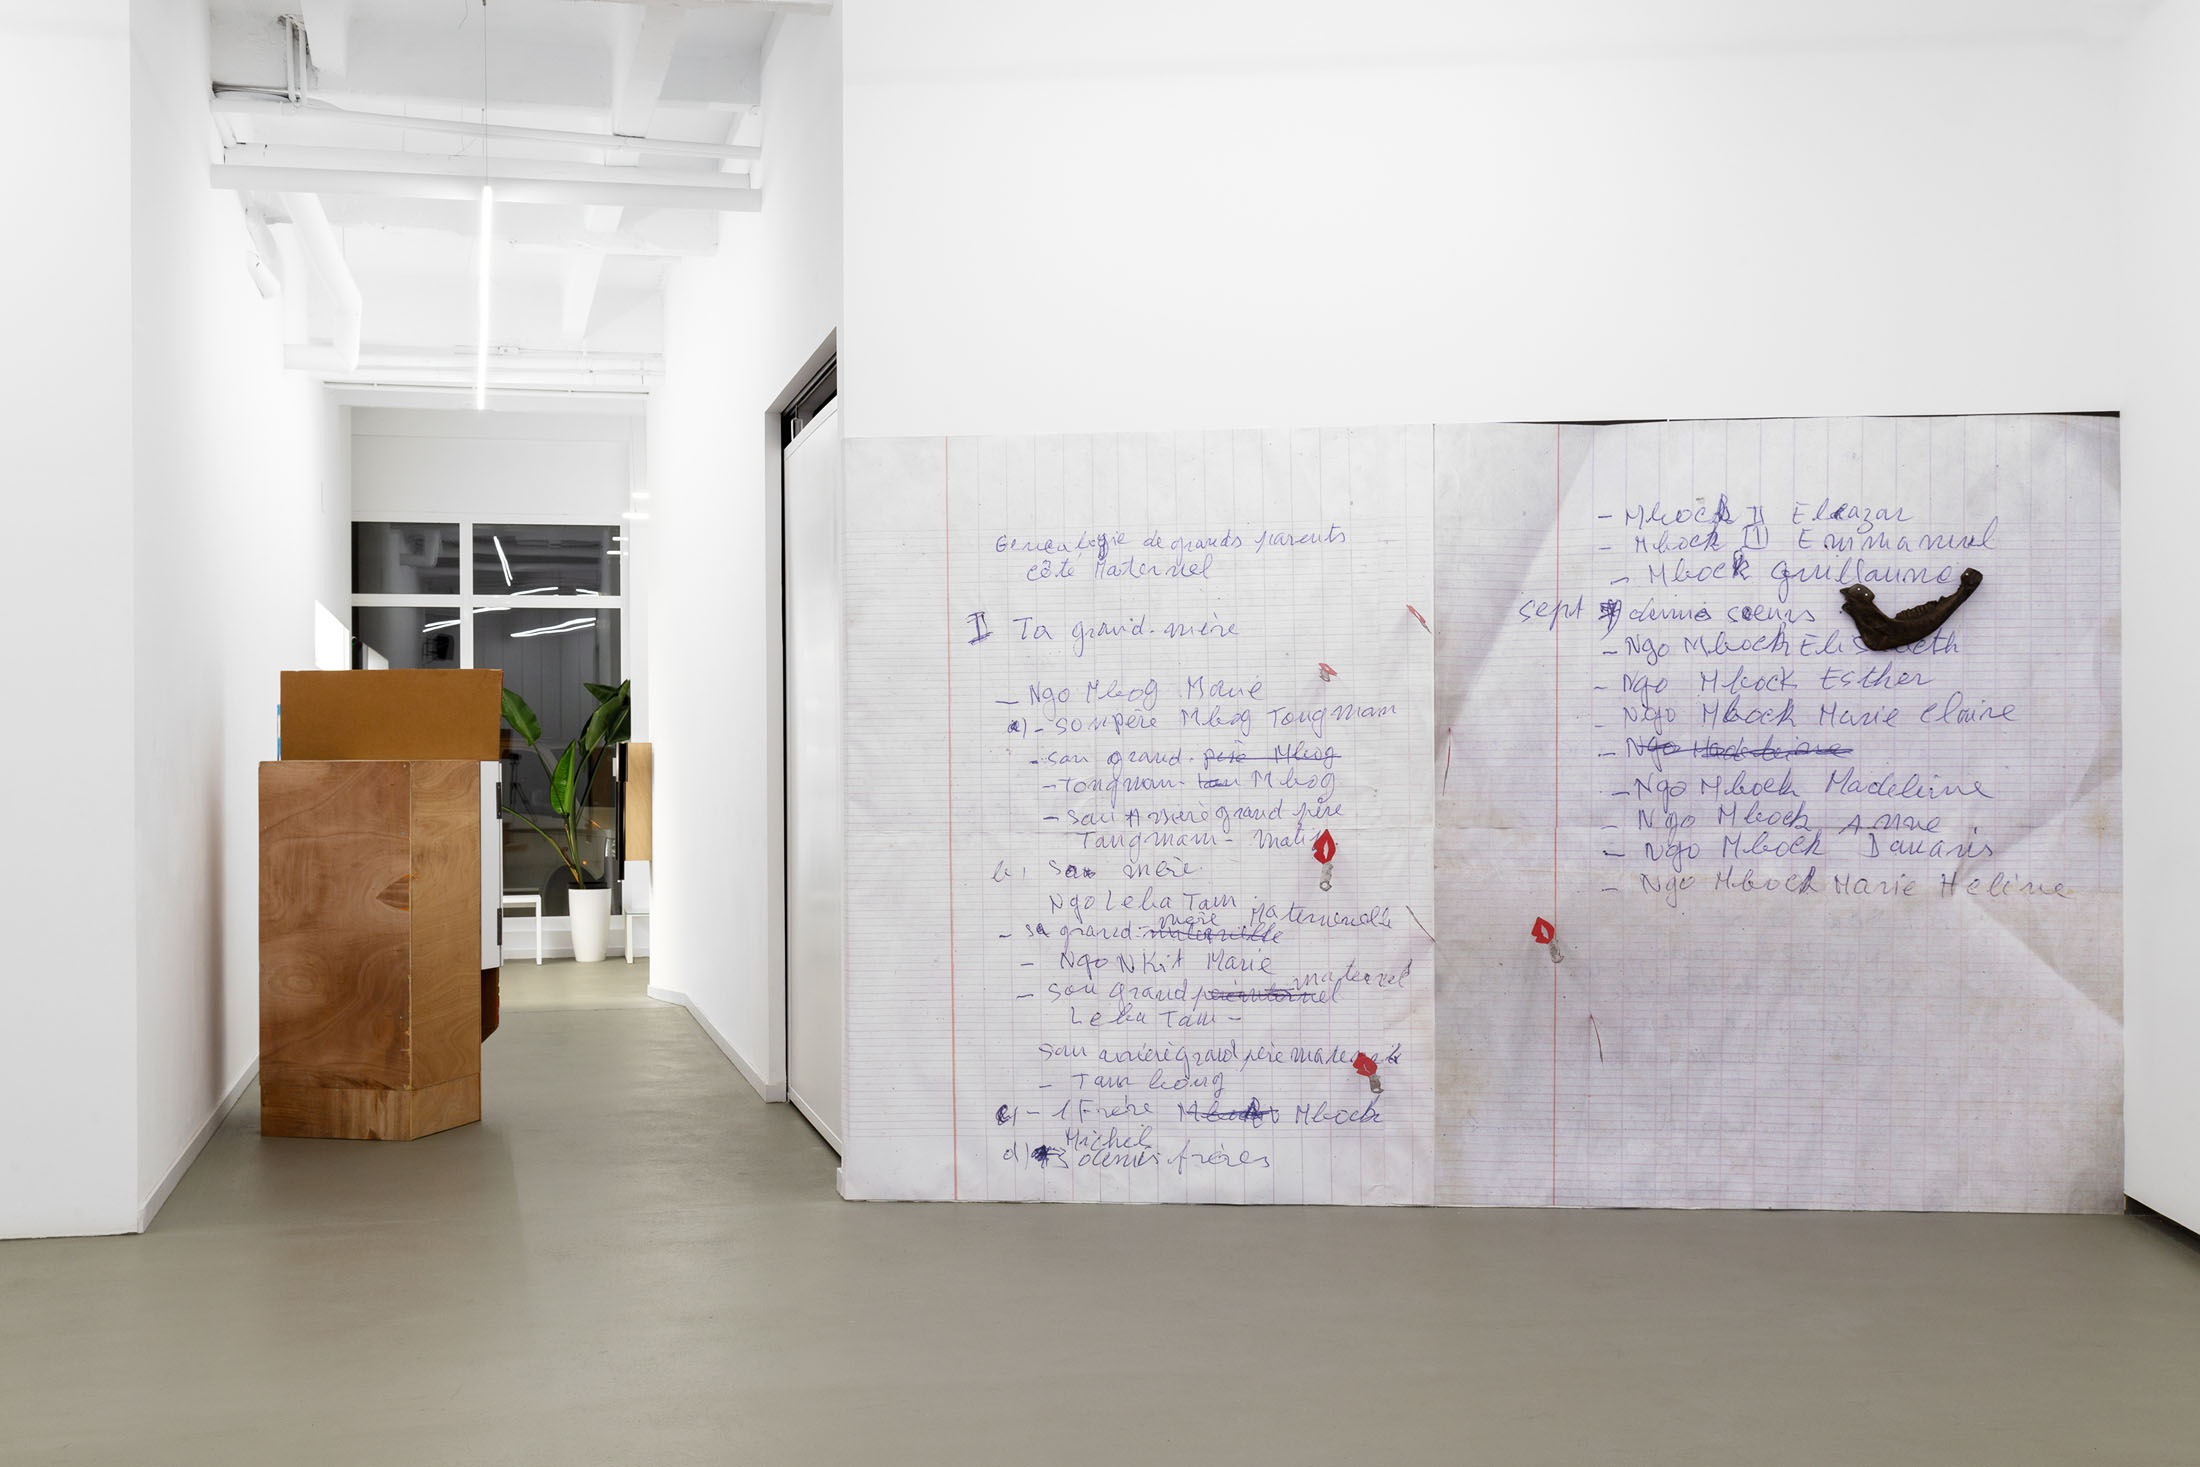 Genealogie de grands parents
côté Maternel
II Ta grand-mère
- Ngo Mbog Marie
a) - son père Mbog Tongmam
- son grand-père Mbog
- Tongmam- Mbog
- son Arrière grand père
Tangmam- Mati
b) sa mère.
Ngo Leba Tam
- sa grand-mère Maternelle
- Ngo NKit Marie
- son grand maternel
Leba Tam -
son arrière grand père maternel
- Tam bong
c) - 1 Frère Mbock
Michel
d) 3 demis frères
- Mbock II Eleazar
- Mbock III Emmanuel
- Mbock Guillaume
sept demies soeurs
- Ngo Mbock Elisabeth
- Ngo Mbock Esther
- Ngo Mbock Marie Claire
- Ngo Madeleine
- Ngo Mbock Madeleine
- Ngo Mbock Anne
- Ngo Mbock Damaris
- Ngo Mbock Marie Hélène